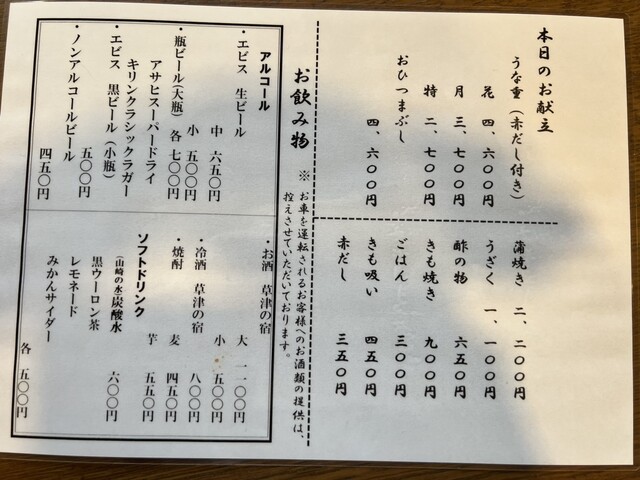 本日のお献立
うな重（赤だし付き）
花 四、六〇〇円
月 三、七〇〇円
特 二、七〇〇円
おひつまぶし
四、六〇〇円
蒲焼き 二、二〇〇円
うざく 一、一〇〇円
酢の物 六五〇円
きも焼き 九〇〇円
ごはん 三〇〇円
きも吸い 四五〇円
赤だし 三五〇円
お飲み物
※ お車を運転されるお客様へのお酒類の提供は、
控えさせていただいております。
アルコール
・エビス 生ビール
中 六五〇円
小 五〇〇円
・瓶ビール（大瓶） 各 七〇〇円
アサヒスーパードライ
キリンクラシックラガー
・エビス 黒ビール（小瓶）
五〇〇円
・ノンアルコールビール
四五〇円
・お酒 草津の宿
大 一一〇〇円
小 五〇〇円
・冷酒 草津の宿 八〇〇円
・焼酎 麦 四五〇円
芋 五五〇円
ソフトドリンク
（山崎の水）炭酸水 六〇〇円
黒ウーロン茶
レモネード
みかんサイダー
各 五〇〇円